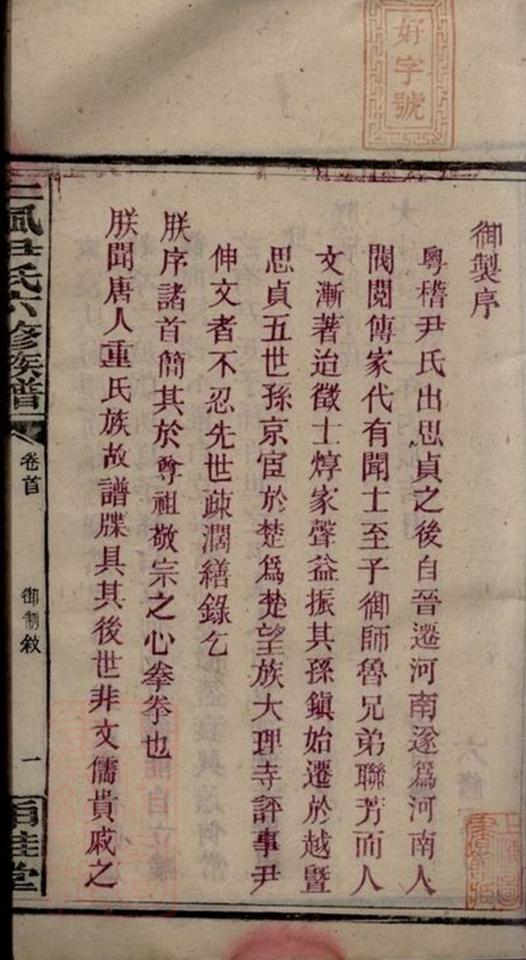 好字號
御製序
粤稽尹氏出思貞之後自晉遷河南遂爲河南人
閥閲傳家代有聞士至子御師魯兄弟聯芳而人
文漸著迨徵士焞家聲益振其孫鎮始遷於越暨
思貞五世孫京宦於楚爲楚望族大理寺評事尹
伸文者不忍先世疎濶繕錄乞
朕序諸首簡其於尊祖敬宗之心拳拳也
朕聞唐人重氏族故譜牒具其後世非文儒貴戚之
尹氏六修族譜
卷首
御制敘
一
桂堂